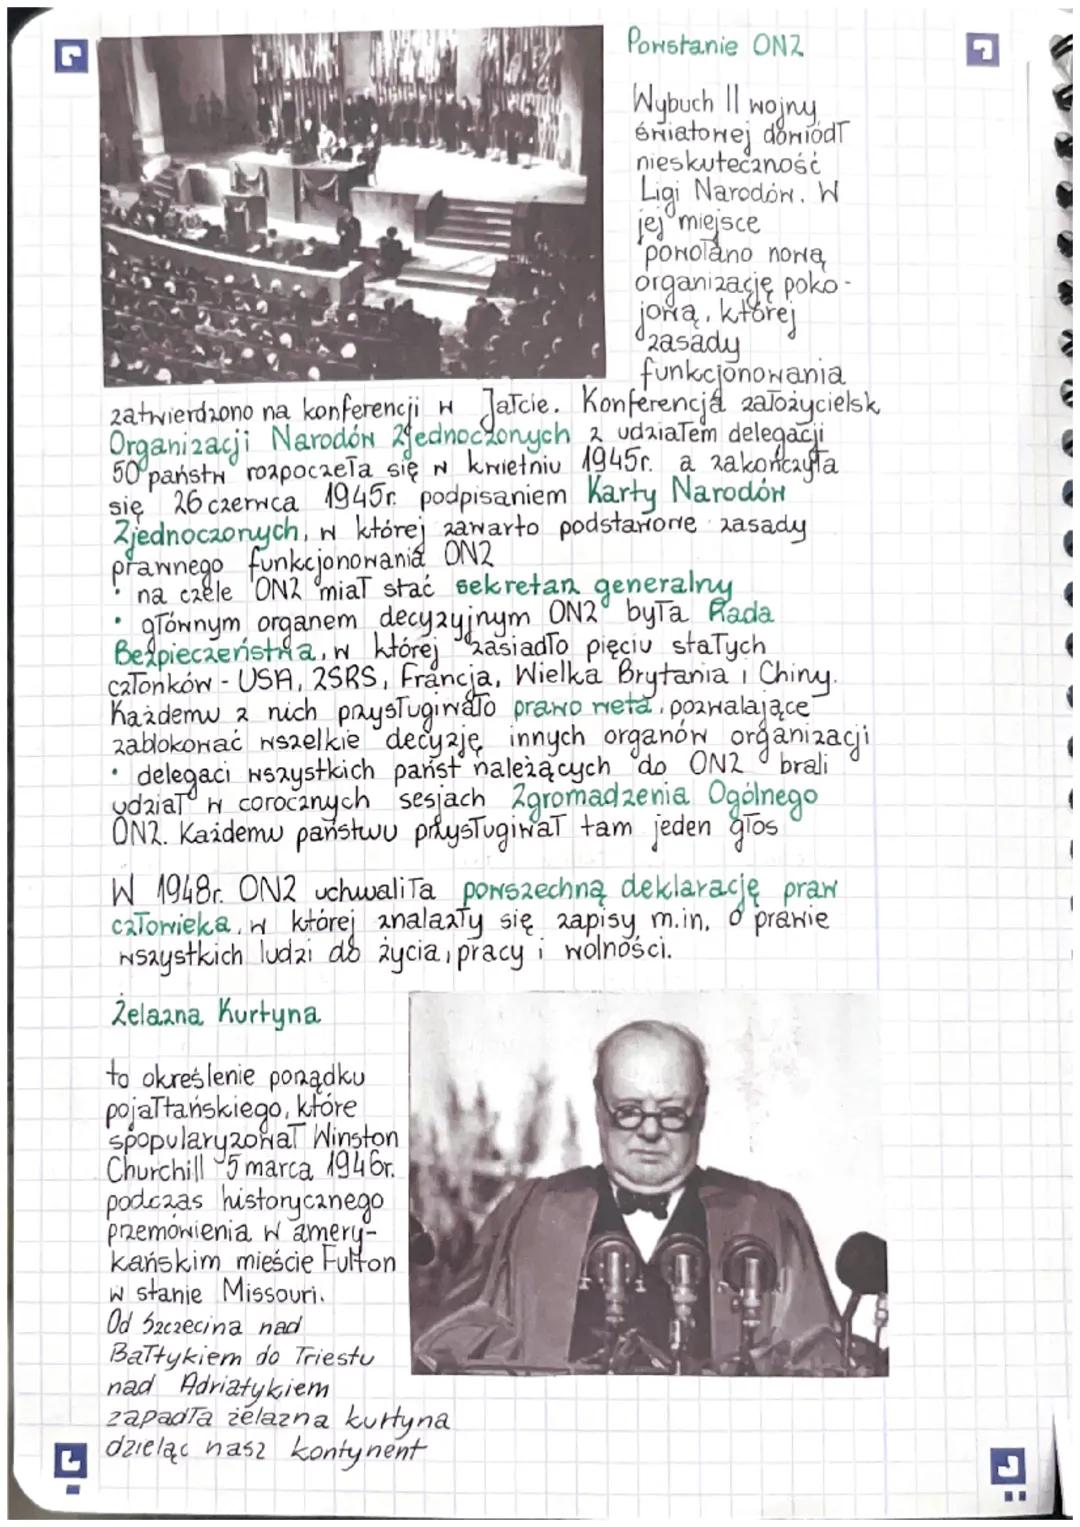 Powstanie ONZ
Wybuch II wojny
światowej dowiódł
nieskuteczność
Ligi Narodów. W
jej miejsce
powołano nową
organizację poko-
jową, której
zasady
funkcjonowania
zatwierdzono na konferencji w Jałcie. Konferencja założycielsk
Organizacji Narodów Zjednoczonych z udziałem delegacji
50 państw rozpoczeła się w kwietniu 1945r. a zakończyła
się 26 czerwca 1945r. podpisaniem Karty Narodów
Zjednoczonych, w której zawarto podstawowe zasady
prawnego funkcjonowania ONZ
• na czele ONZ miał stać sekretarz generalny
• głównym organem decyzyjnym ONZ była Rada
Bezpieczeństwa, w której zasiadło pięciu stałych
członków - USA, ZSRS, Francja, Wielka Brytania i Chiny.
Każdemu z nich przysługiwało prawo weta, pozwalające
zablokować wszelkie decyzję innych organów organizacji
• delegaci wszystkich państ należących do ONZ brali
udział w corocznych sesjach Zgromadzenia Ogólnego
ONZ. Każdemu państwu przysługiwał tam jeden głos
W 1948r. ONZ uchwaliła powszechną deklarację praw
człowieka, w której znalazły się zapisy m.in. o prawie
wszystkich ludzi do życia, pracy i wolności.
Żelazna Kurtyna
to określenie porządku
pojałtańskiego, które
spopularyzował Winston
Churchill 5 marca 1946r.
podczas historycznego
przemówienia w amery-
kańskim mieście Fulton
w stanie Missouri.
Od Szczecina nad
Bałtykiem do Triestu
nad Adriatykiem
zapadła żelazna kurtyna
dzieląc nasz kontynent